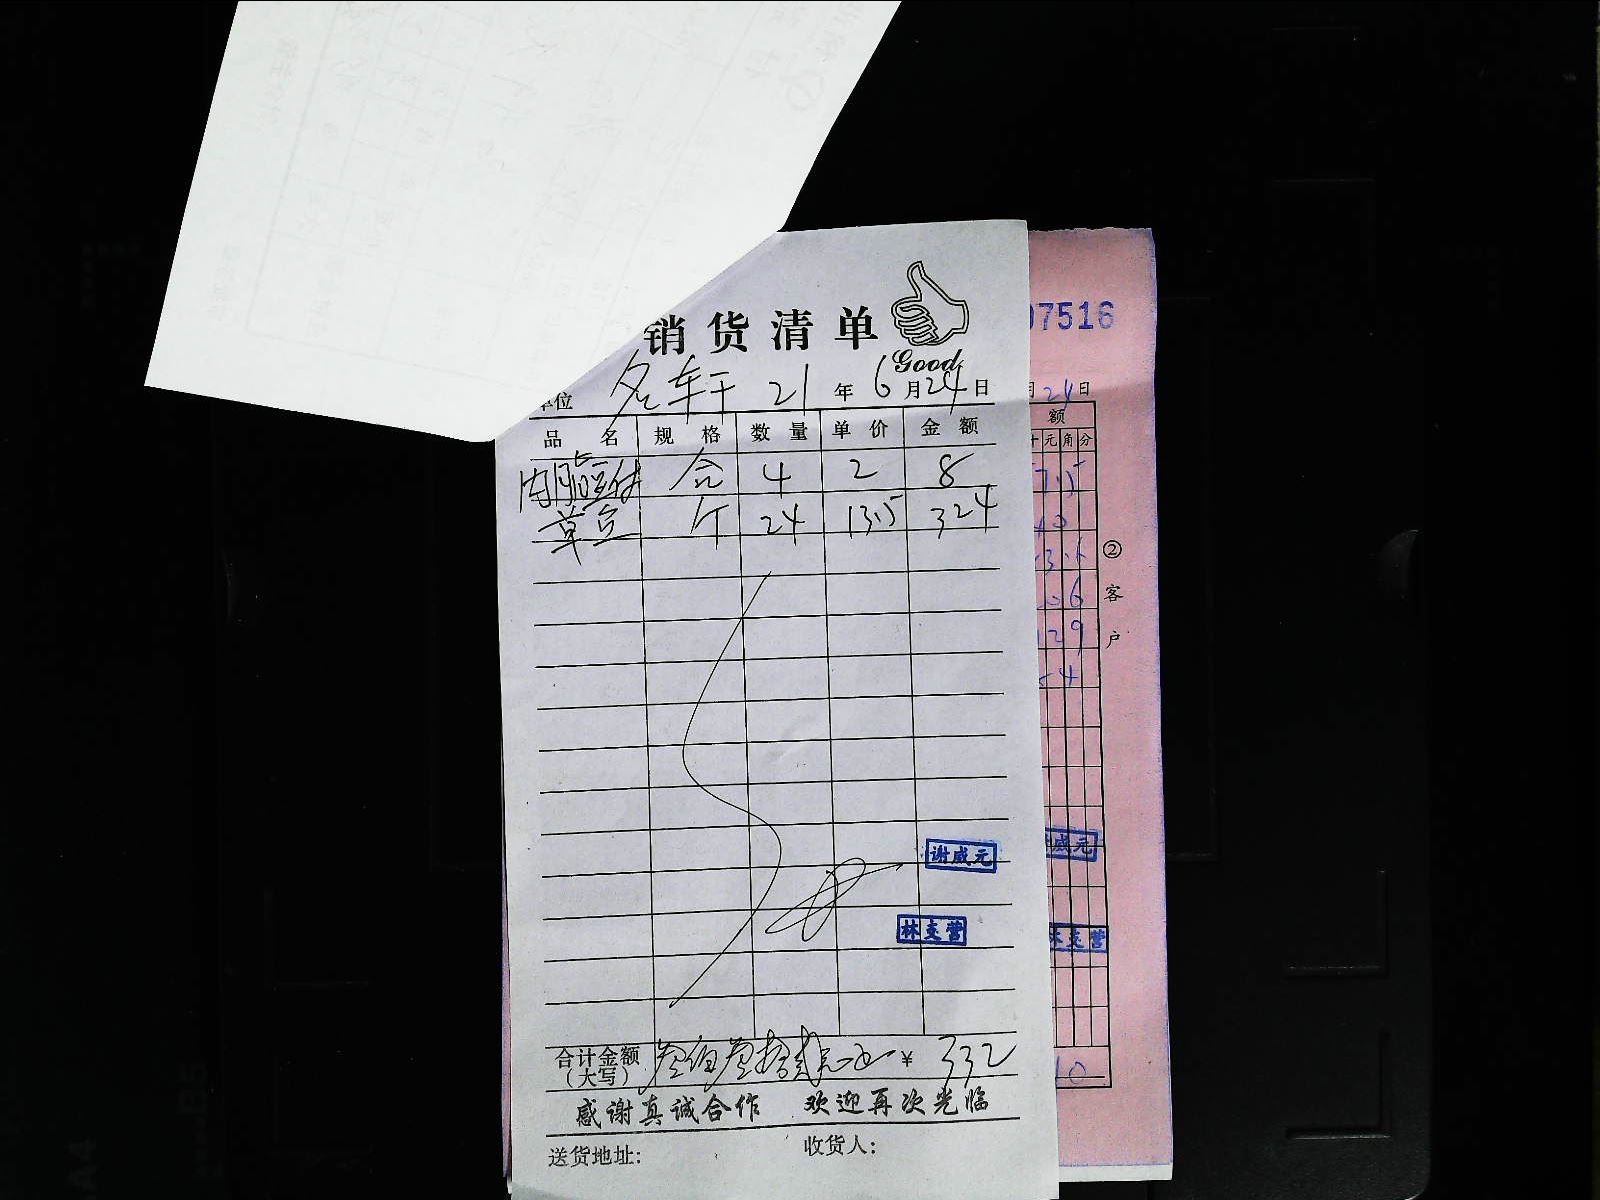 销货清单
Good
位 名轩 21年6月24日
品名 规格 数量 单价 金额
内脂豆付 合 4 2 8
草 个 24 13.5 324
谢威元
林支营
合计金额(大写) 叁佰叁拾贰元正 ¥ 332
感谢真诚合作 欢迎再次光临
送货地址: 收货人:
07516
月24日
额
十元角分
7.5
06
129
54
②客户
威元
支营
10